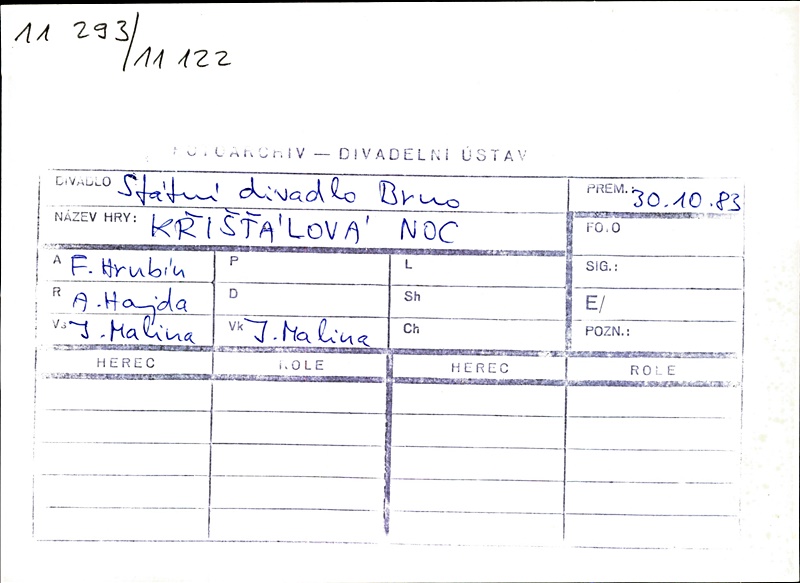 11 293/11 122
FOTOARCHIV — DIVADELNÍ ÚSTAV
DIVADLO Státní divadlo Brno
PREM.: 30.10.83
NÁZEV HRY: KŘIŠŤÁLOVÁ NOC
FO.O
A F. Hrubín P L
SIG.:
R A. Hajda D Sh
E/
Vs J. Malina Vk J. Malina Ch
POZN.:
HEREC ROLE HEREC ROLE